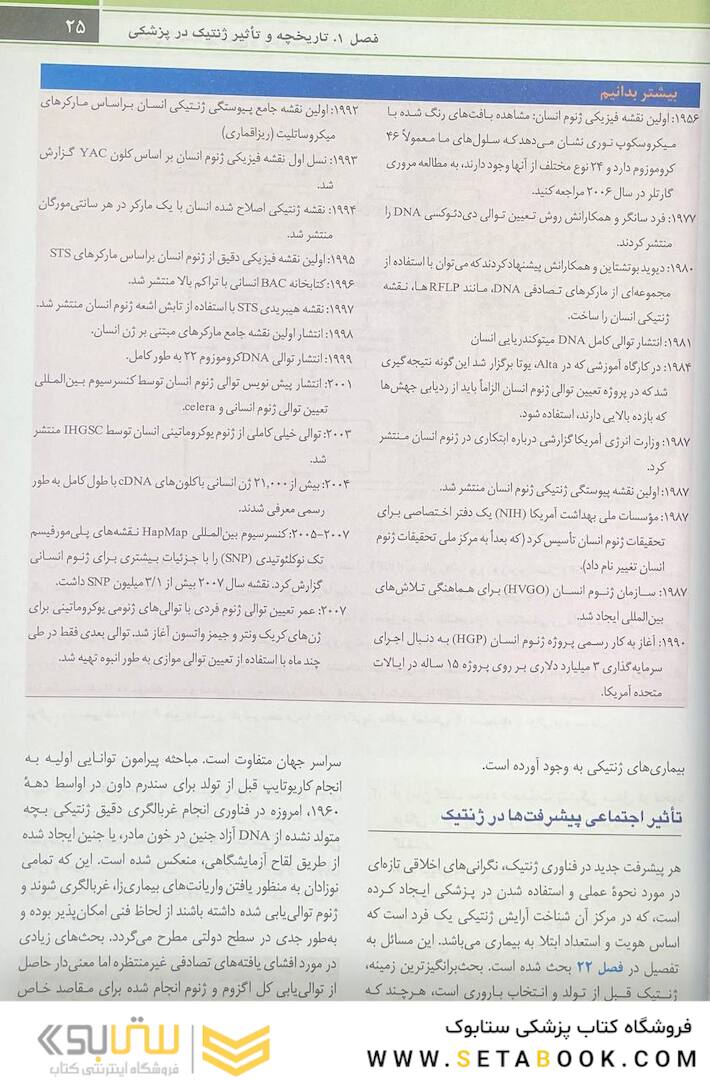 فصل ۱. تاریخچه و تأثیر ژنتیک در پزشکی
۲۵
بیشتر بدانیم
۱۹۵۶: اولین نقشه فیزیکی ژنوم انسان: مشاهده بافت‌های رنگ شده با
میکروسکوپ نوری نشان می‌دهد که سلول‌های ما معمولاً ۴۶
کروموزوم دارد و ۲۴ نوع مختلف از آنها وجود دارند، به مطالعه مروری
گارتلر در سال ۲۰۰۶ مراجعه کنید.
۱۹۷۷: فرد سانگر و همکارانش روش تعیین توالی دی‌دئوکسی DNA را
منتشر کردند.
۱۹۸۰: دیوید بوتشتاین و همکارانش پیشنهاد کردند که می‌توان با استفاده از
مجموعه‌ای از مارکرهای تصادفی DNA، مانند RFLPها، نقشه
ژنتیکی انسان را ساخت.
۱۹۸۱: انتشار توالی کامل DNA میتوکندریایی انسان
۱۹۸۴: در کارگاه آموزشی که در Alta، یوتا برگزار شد این گونه نتیجه‌گیری
شد که در پروژه تعیین توالی ژنوم انسان الزاماً باید از ردیابی جهش‌ها
که بازده بالایی دارند، استفاده شود.
۱۹۸۷: وزارت انرژی آمریکا گزارشی درباره ابتکاری در ژنوم انسان منتشر
کرد.
۱۹۸۷: اولین نقشه پیوستگی ژنتیکی ژنوم انسان منتشر شد.
۱۹۸۷: مؤسسات ملی بهداشت آمریکا (NIH) یک دفتر اختصاصی برای
تحقیقات ژنوم انسان تأسیس کرد (که بعداً به مرکز ملی تحقیقات ژنوم
انسان تغییر نام داد).
۱۹۸۷: سازمان ژنوم انسان (HVGO) برای هماهنگی تلاش‌های
بین‌المللی ایجاد شد.
۱۹۹۰: آغاز به کار رسمی پروژه ژنوم انسان (HGP) به دنبال اجرای
سرمایه‌گذاری ۳ میلیارد دلاری بر روی پروژه ۱۵ ساله در ایالات
متحده آمریکا.
۱۹۹۲: اولین نقشه جامع پیوستگی ژنتیکی انسان براساس مارکرهای
میکروساتلیت (ریزاقماری)
۱۹۹۳: نسل اول نقشه فیزیکی ژنوم انسان بر اساس کلون YAC گزارش
شد.
۱۹۹۴: نقشه ژنتیکی اصلاح شده انسان با یک مارکر در هر سانتی‌مورگان
منتشر شد.
۱۹۹۵: اولین نقشه فیزیکی دقیق از ژنوم انسان براساس مارکرهای STS
۱۹۹۶: کتابخانه BAC انسانی با تراکم بالا منتشر شد.
۱۹۹۷: نقشه هیبریدی STS با استفاده از تابش اشعه ژنوم انسان منتشر شد.
۱۹۹۸: انتشار اولین نقشه جامع مارکرهای مبتنی بر ژن انسان.
۱۹۹۹: انتشار توالی DNA کروموزوم ۲۲ به طور کامل.
۲۰۰۱: انتشار پیش نویس توالی ژنوم انسان توسط کنسرسیوم بین‌المللی
تعیین توالی ژنوم انسانی و celera.
۲۰۰۳: توالی خیلی کاملی از ژنوم یوکروماتینی انسان توسط IHGSC منتشر
شد.
۲۰۰۴: بیش از ۲۱,۰۰۰ ژن انسانی با کلون‌های cDNA با طول کامل به طور
رسمی معرفی شدند.
۲۰۰۷-۲۰۰۵: کنسرسیوم بین‌المللی HapMap نقشه‌های پلی‌مورفیسم
تک نوکلئوتیدی (SNP) را با جزئیات بیشتری برای ژنوم انسانی
گزارش کرد. نقشه سال ۲۰۰۷ بیش از ۳/۱ میلیون SNP داشت.
۲۰۰۷: عمر تعیین توالی ژنوم فردی با توالی‌های ژنومی یوکروماتینی برای
ژن‌های کریک ونتر و جیمز واتسون آغاز شد. توالی بعدی فقط در طی
چند ماه با استفاده از تعیین توالی موازی به طور انبوه تهیه شد.
بیماری‌های ژنتیکی به وجود آورده است.
تأثیر اجتماعی پیشرفت‌ها در ژنتیک
هر پیشرفت جدید در فناوری ژنتیک، نگرانی‌های اخلاقی تازه‌ای
در مورد نحوهٔ عملی و استفاده شدن در پزشکی ایجاد کرده
است، که در مرکز آن شناخت آرایش ژنتیکی یک فرد است که
اساس هویت و استعداد ابتلا به بیماری می‌باشد. این مسائل به
تفصیل در فصل ۲۲ بحث شده است. بحث‌برانگیزترین زمینه،
ژنتیک قبل از تولد و انتخاب باروری است، هرچند که
سراسر جهان متفاوت است. مباحثه پیرامون توانایی اولیه به
انجام کاریوتایپ قبل از تولد برای سندرم داون در اواسط دههٔ
۱۹۶۰، امروزه در فناوری انجام غربالگری دقیق ژنتیکی بچه
متولد نشده از DNA آزاد جنین در خون مادر، یا جنین ایجاد شده
از طریق لقاح آزمایشگاهی، منعکس شده است. این که تمامی
نوزادان به منظور یافتن واریانت‌های بیماری‌زا، غربالگری شوند و
ژنوم توالی‌یابی شده داشته باشند از لحاظ فنی امکان‌پذیر بوده و
به‌طور جدی در سطح دولتی مطرح می‌گردد. بحث‌های زیادی
در مورد افشای یافته‌های تصادفی غیرمنتظره اما معنی‌دار حاصل
از توالی‌یابی کل اگزوم و ژنوم انجام شده برای مقاصد خاص
فروشگاه کتاب پزشکی ستابوک
WWW.SETABOOK.COM
ستابوک
فروشگاه اینترنتی کتاب